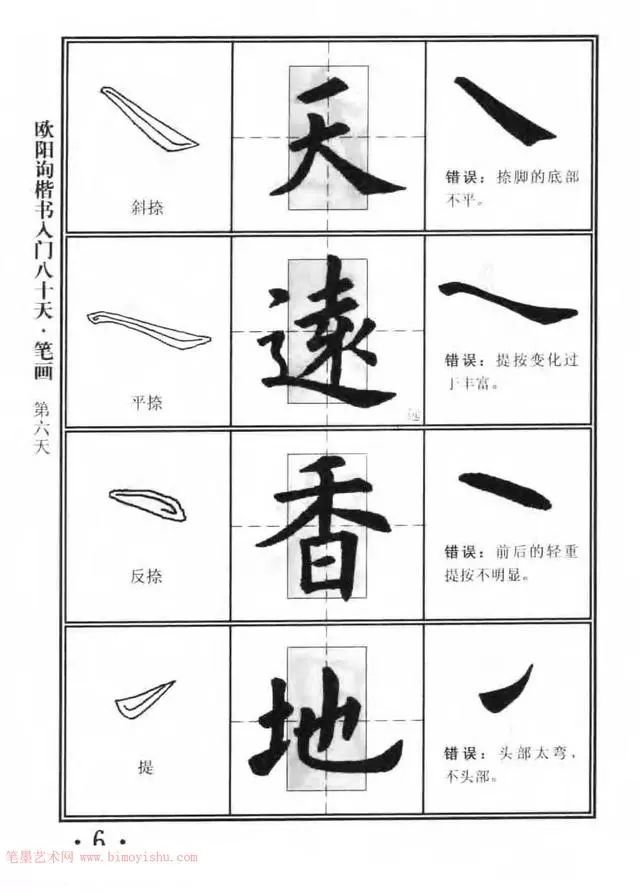 欧阳询楷书入门八十天·笔画 第六天
斜捺
天
错误：捺脚的底部
不平。
平捺
遠
远
错误：提按变化过
于丰富。
反捺
香
错误：前后的轻重
提按不明显。
提
地
错误：头部太弯，
不头部。
·6·
笔墨艺术网 www.bimoyishu.com